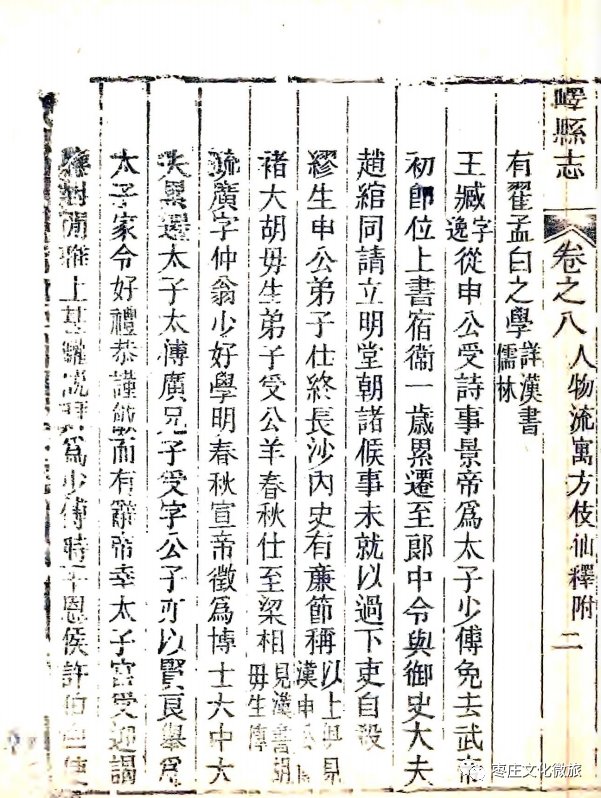 嶧縣志
卷之八 人物流寓方伎仙釋附 二
有翟孟白之學詳漢書儒林
王臧字逸從申公受詩事景帝爲太子少傅免去武帝
初卽位上書宿衞一歲累遷至郞中令與御史大夫
趙綰同請立明堂朝諸侯事未就以過下吏自殺
繆生申公弟子仕終長沙內史有廉節稱以上 見漢申公
褚大胡毋生弟子受公羊春秋仕至梁相見漢書胡毋生傳
疏廣字仲翁少好學明春秋宣帝徵爲博士太中大
夫累遷太子太傅廣兄子受字公子亦以賢良舉爲
太子家令好禮恭謹敏而有辭帝幸太子宮受迎謁
應對閒雅上甚 爲少傅時平恩侯許伯
枣庄文化微旅